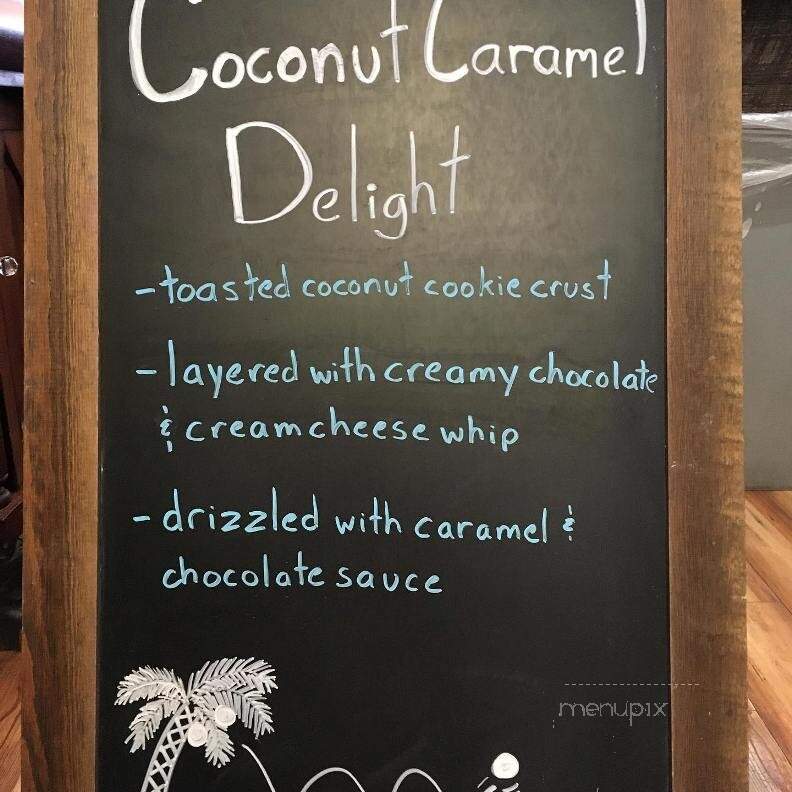 Coconut Caramel
Delight
- toasted coconut cookie crust
- layered with creamy chocolate
& creamcheese whip
- drizzled with caramel &
chocolate sauce
menupix